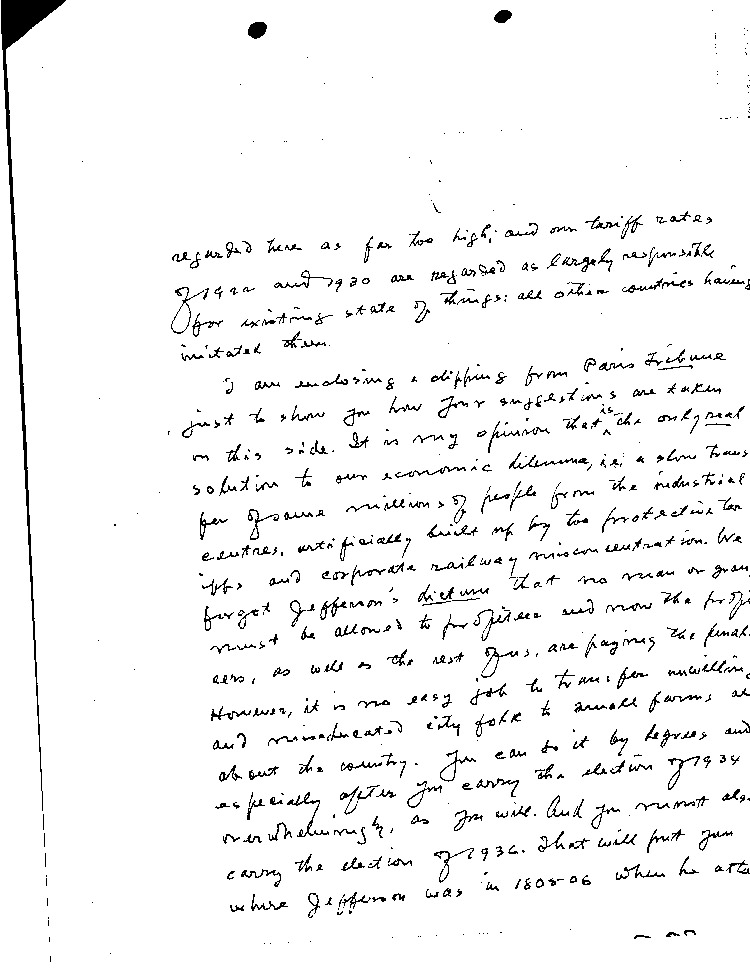 regarded here as far too high; and our tariff rates
of 1922 and 1930 are regarded as largely responsible
for existing state of things: all other countries having
imitated them.
I am enclosing a clipping from Paris Tribune
just to show you how your suggestions are taken
on this side. It is my opinion that is the only real
solution to our economic dilemma, i.e. a slow trans
fer of some millions of people from the industrial
centres, artificially built up by too protective tar
iffs and corporate railway misconcentration. We
forgot Jefferson's dictum that no man or group
must be allowed to profiteer and now the profit
eers, as well as the rest of us, are paying the penal
However, it is no easy job to transfer unwilling
and miseducated city folk to small farms all
about the country. You can do it by degrees and
especially after you carry the election of 1934
overwhelmingly, as you will. And you must als
carry the election of 1936. That will put you
where Jefferson was in 1805-06 when he atte